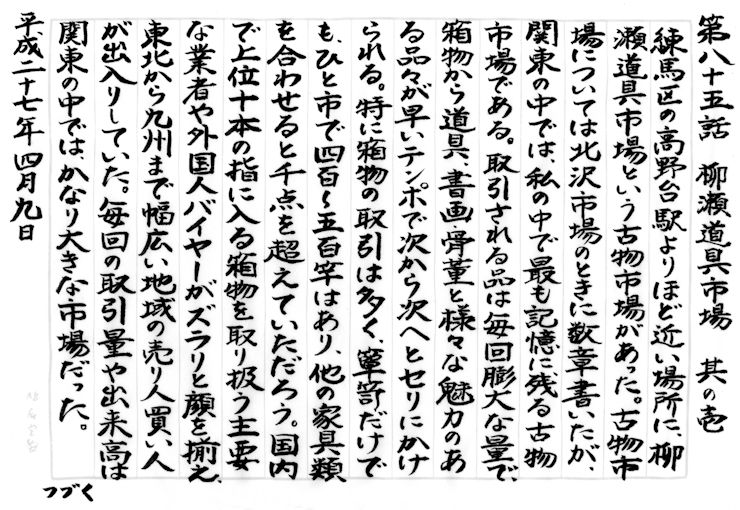 第八十五話　柳瀬道具市場　其の壱
練馬区の高野台駅よりほど近い場所に、柳
瀬道具市場という古物市場があった。古物市
場については北沢市場のときに数章書いたが、
関東の中では、私の中で最も記憶に残る古物
市場である。取引される品は毎回膨大な量で、
箱物から道具、書画骨董と様々な魅力のあ
る品々が早いテンポで次から次へとセリにかけ
られる。特に箱物の取引は多く、箪笥だけで
も、ひと市で四百〜五百竿はあり、他の家具類
を合わせると千点を超えていただろう。国内
で上位十本の指に入る箱物を取り扱う主要
な業者や外国人バイヤーがズラリと顔を揃え、
東北から九州まで幅広い地域の売り人買い人
が出入りしていた。毎回の取引量や出来高は
関東の中では、かなり大きな市場だった。
平成二十七年四月九日
つづく